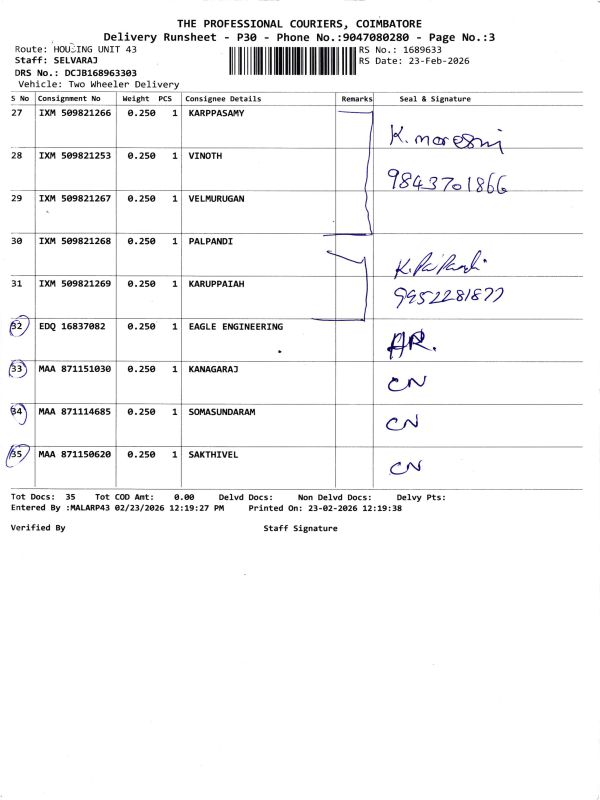 THE PROFESSIONAL COURIERS, COIMBATORE
Delivery Runsheet - P30 - Phone No.:9047080280 - Page No.:3
Route: HOUSING UNIT 43 RS No.: 1689633
Staff: SELVARAJ RS Date: 23-Feb-2026
DRS No.: DCJB168963303
Vehicle: Two Wheeler Delivery
S No Consignment No Weight PCS Consignee Details Remarks Seal & Signature
27 IXM 509821266 0.250 1 KARPPASAMY
28 IXM 509821253 0.250 1 VINOTH
9843701866
29 IXM 509821267 0.250 1 VELMURUGAN
30 IXM 509821268 0.250 1 PALPANDI
31 IXM 509821269 0.250 1 KARUPPAIAH
9952281877
32 EDQ 16837082 0.250 1 EAGLE ENGINEERING AR.
33 MAA 871151030 0.250 1 KANAGARAJ CN
34 MAA 871114685 0.250 1 SOMASUNDARAM CN
35 MAA 871150620 0.250 1 SAKTHIVEL CN
Tot Docs: 35 Tot COD Amt: 0.00 Delvd Docs: Non Delvd Docs: Delvy Pts:
Entered By :MALARP43 02/23/2026 12:19:27 PM Printed On: 23-02-2026 12:19:38
Verified By Staff Signature